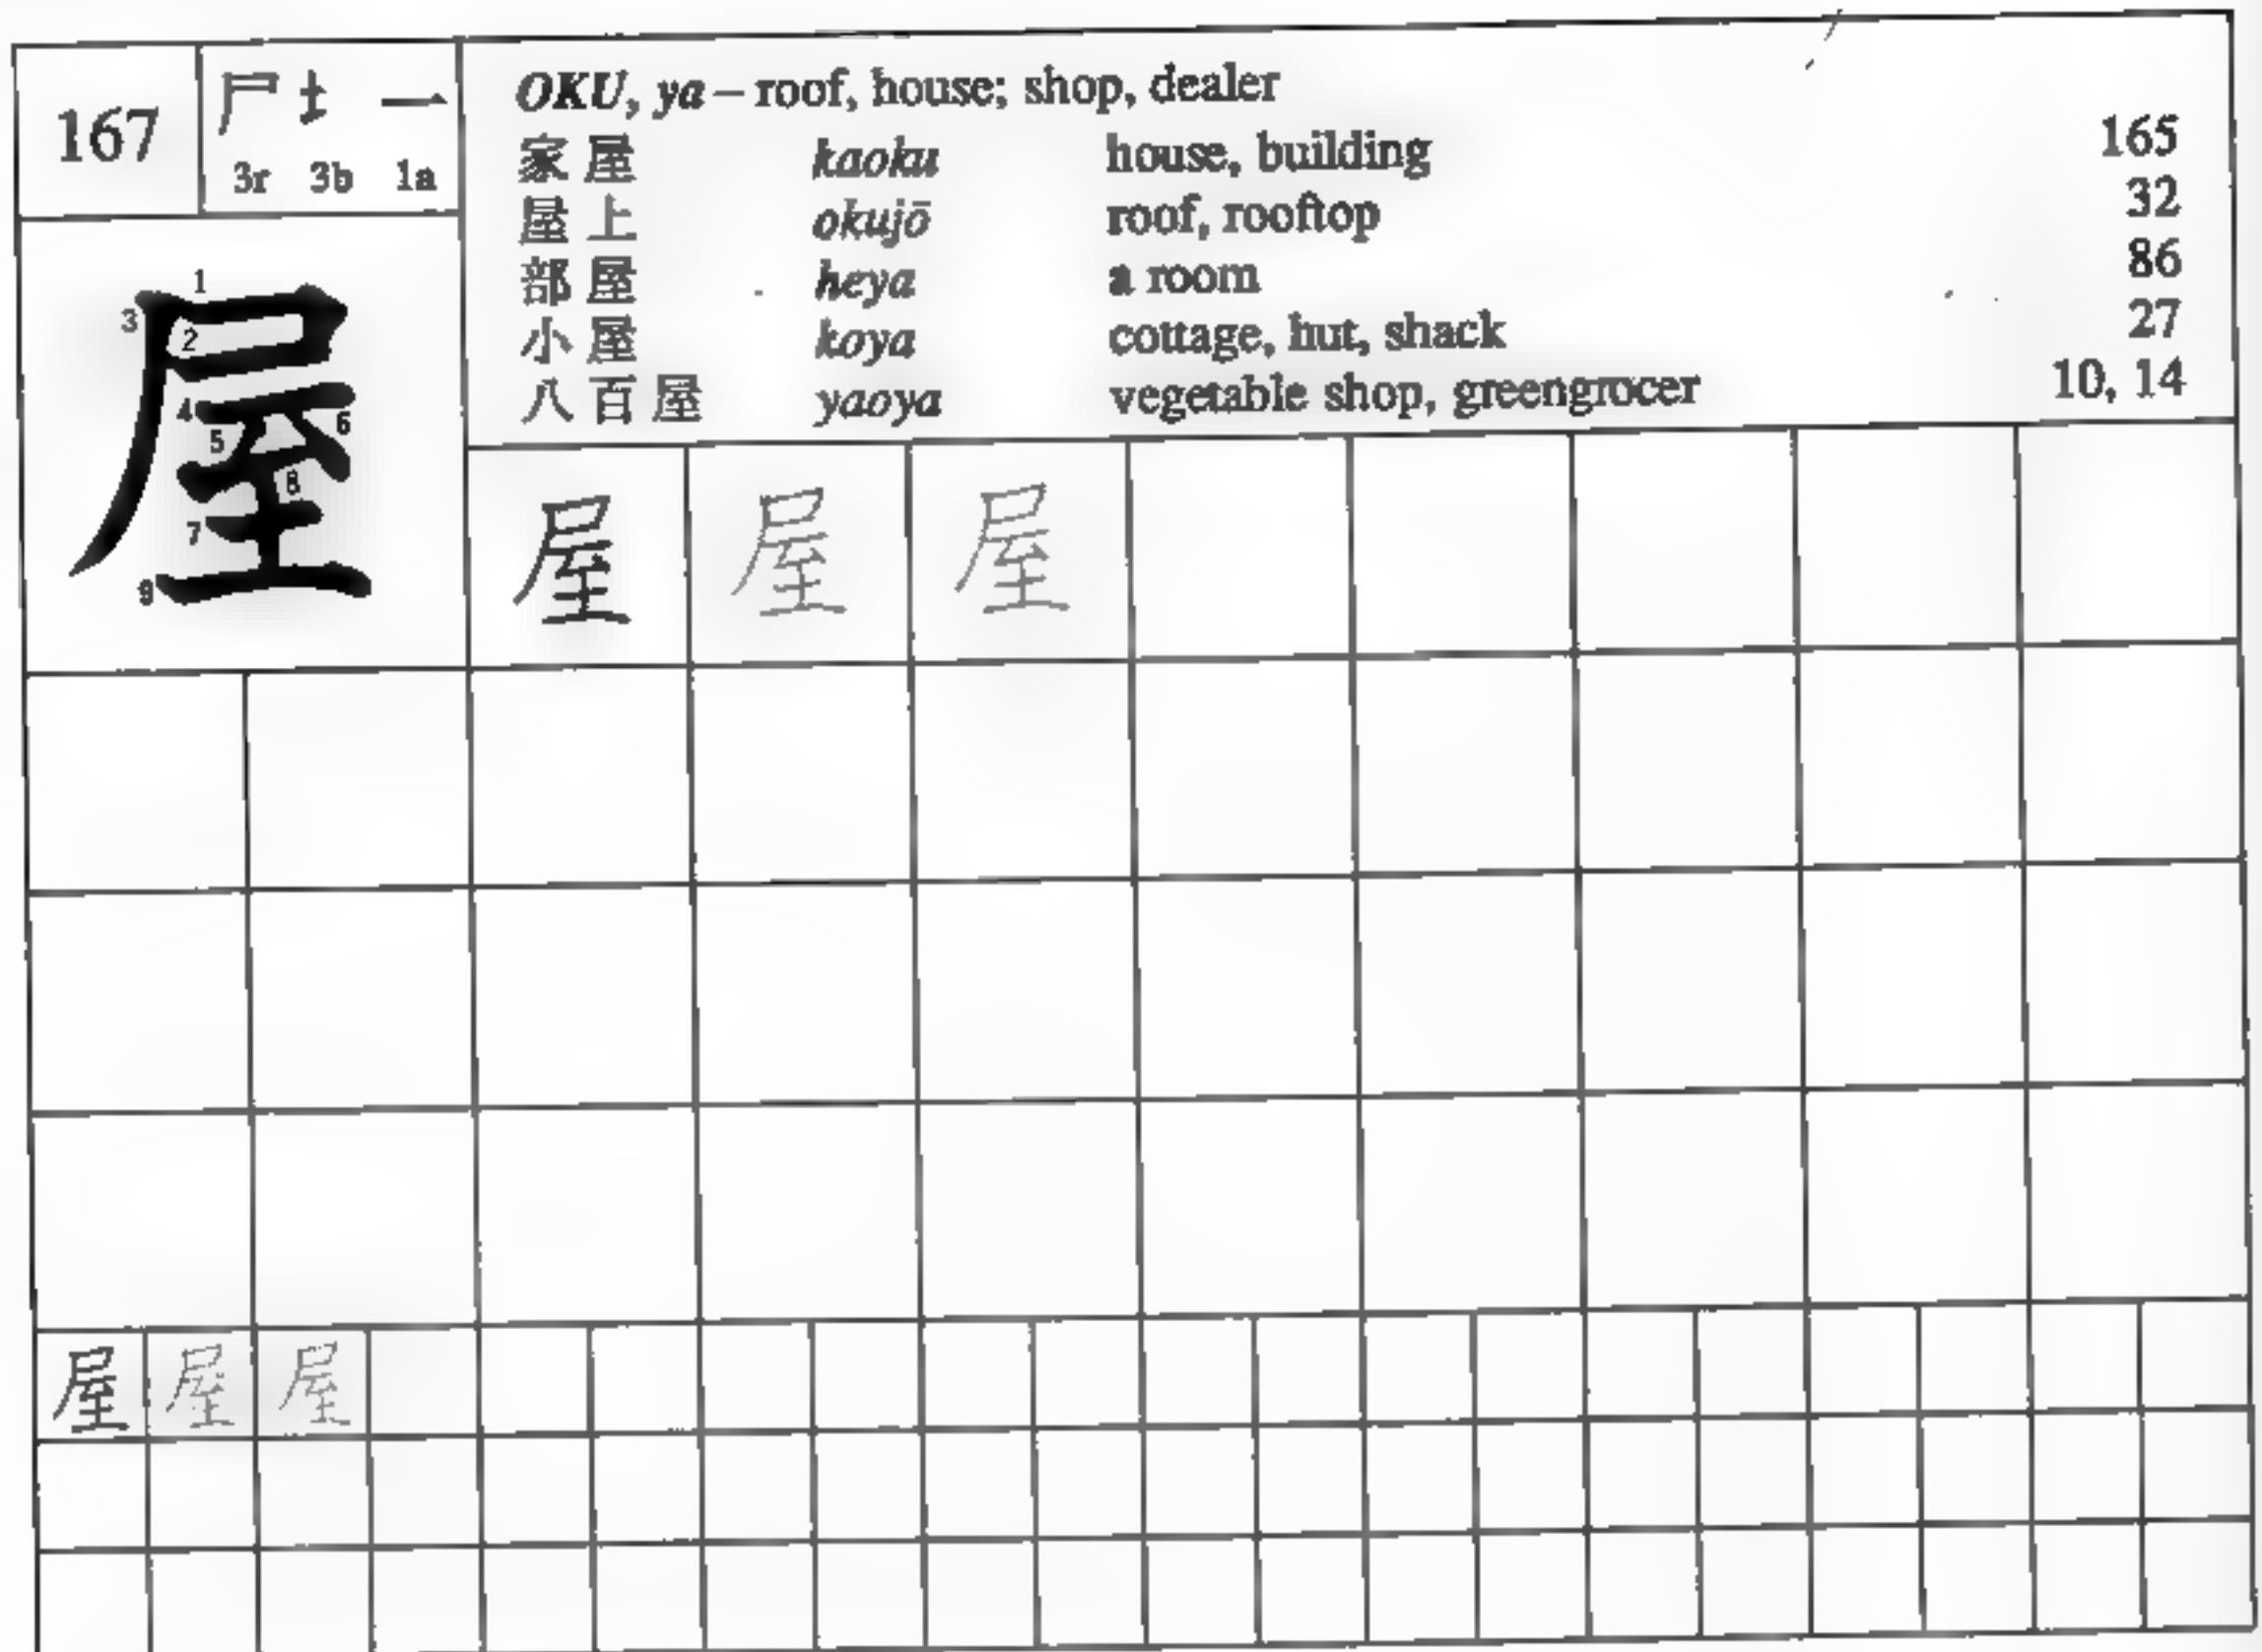 167
尸 土 一
3r 3b 1a
OKU, ya – roof, house; shop, dealer
家屋 kaoku house, building 165
屋上 okujō roof, rooftop 32
部屋 heya a room 86
小屋 koya cottage, hut, shack 27
八百屋 yaoya vegetable shop, greengrocer 10, 14
屋
1
2
3
4
5
6
7
8
9
屋 屋 屋
屋 屋 屋